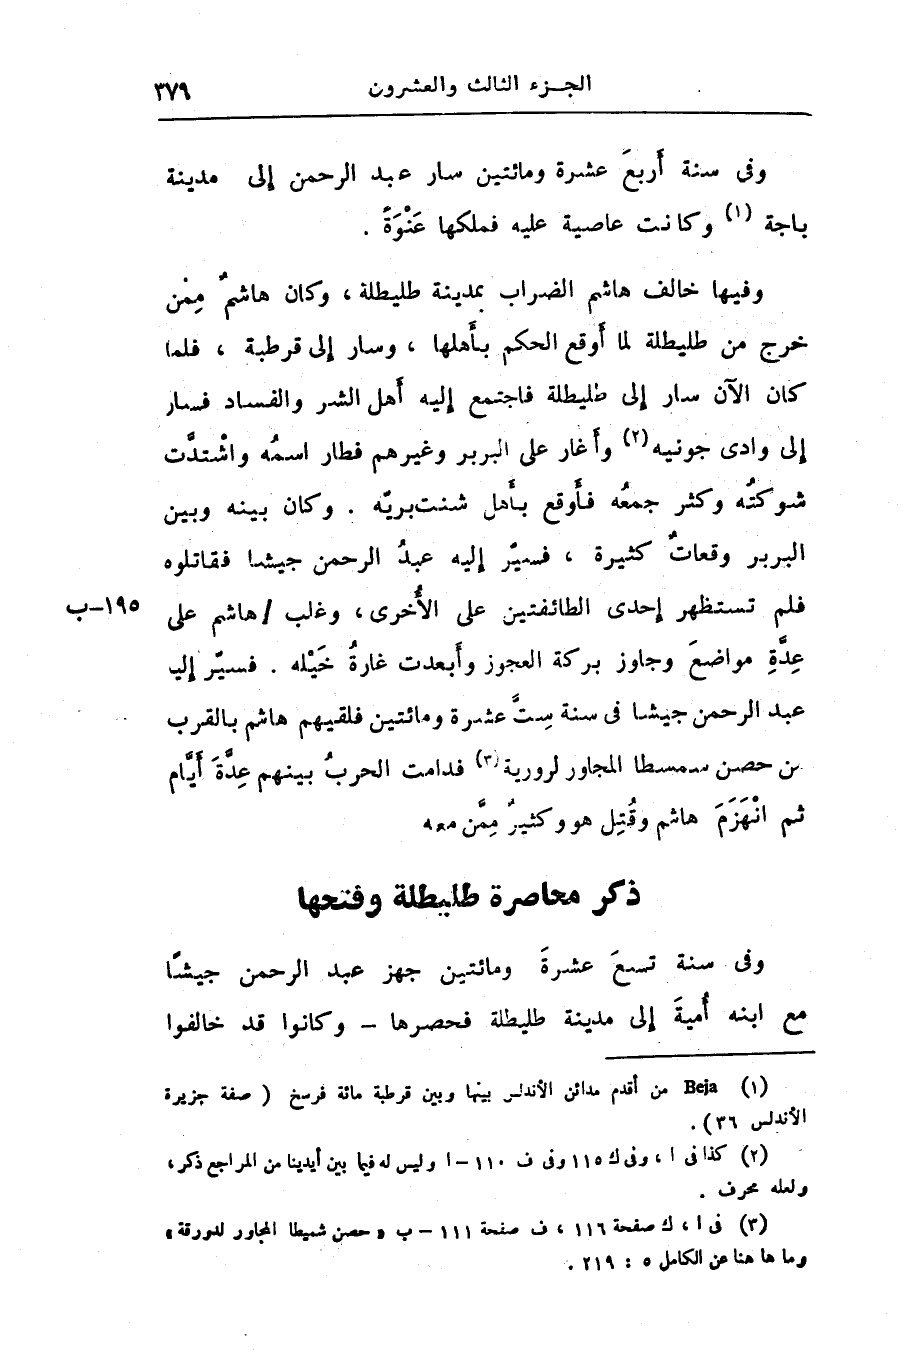 الجزء الثالث والعشرون ٣٧٩
وفى سنة أربعَ عشرة ومائتين سار عبد الرحمن إلى مدينة
باجة (١) وكانت عاصية عليه فملكها عَنْوَةً .
وفيها خالف هاشم الضراب بمدينة طليطلة ، وكان هاشمٌ مِمْن
خرج من طليطلة لما أَوقع الحكم بأَهلها ، وسار إلى قرطبة ، فلما
كان الآن سار إلى طليطلة فاجتمع إليه أَهل الشر والفساد فسار
إلى وادى جونيه(٢) وأَغار على البربر وغيرهم فطار اسمُه واشْتدَّت
شوكتُه وكثر جمعُه فأَوقع بأَهل شنت‌بريّه . وكان بينه وبين
البربر وقعاتٌ كثيرة ، فسيّر إليه عبدُ الرحمن جيشا فقاتلوه
فلم تستظهر إحدى الطائفتين على الأُخرى ، وغلب /هاشم على ١٩٥–ب
عِدَّةِ مواضعَ وجاوز بركة العجوز وأَبعدت غارةُ خَيْله . فسيّر إليه
عبد الرحمن جيشا فى سنة سِتَّ عشرة ومائتين فلقيهم هاشم بالقرب
من حصن سمسطا المجاور لرورية(٣) فدامت الحربُ بينهم عِدَّةَ أَيَّام
ثم انْهَزَمَ هاشم وقُتِل هو وكثيرٌ مِمَّن معه
ذكر محاصرة طليطلة وفتحها
وفى سنة تسعَ عشرةَ ومائتين جهز عبد الرحمن جيشًا
مع ابنه أُميةَ إلى مدينة طليطلة فحصرها – وكانوا قد خالفوا
(١) Beja من أقدم مدائن الأندلس بينها وبين قرطبة مائة فرسخ ( صفة جزيرة
الأندلس ٣٦) .
(٢) كذا فى ا ، وفى ك ١١٥ وفى ف ١١٠ – ا وليس له فيما بين أيدينا من المراجع ذكر ،
ولعله محرف .
(٣) فى ا ، ك صفحة ١١٦ ، ف صفحة ١١١ – ب « حصن شميطا المجاور لدورقة »
وما ها هنا عن الكامل ٥ : ٢١٩ .